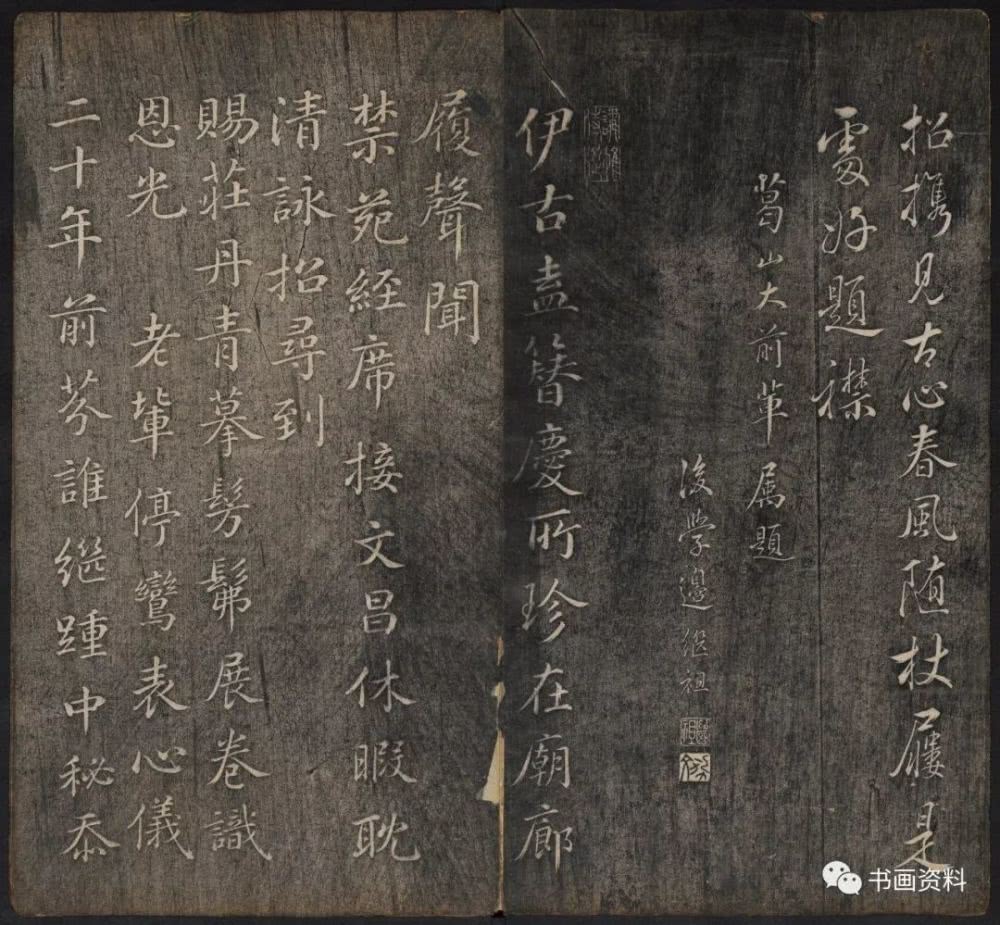 招携見古心春風随杖屨是
處好題襟
葛山大前軰属題
後学邊繼祖
伊古盍簪慶所珍在廟廊
履聲聞
禁苑經席接文昌休暇耽
清詠招尋到
賜莊丹青摹髣髴展卷識
恩光老軰停鸞表心儀
二十年前芬誰継踵中秘忝
书画资料